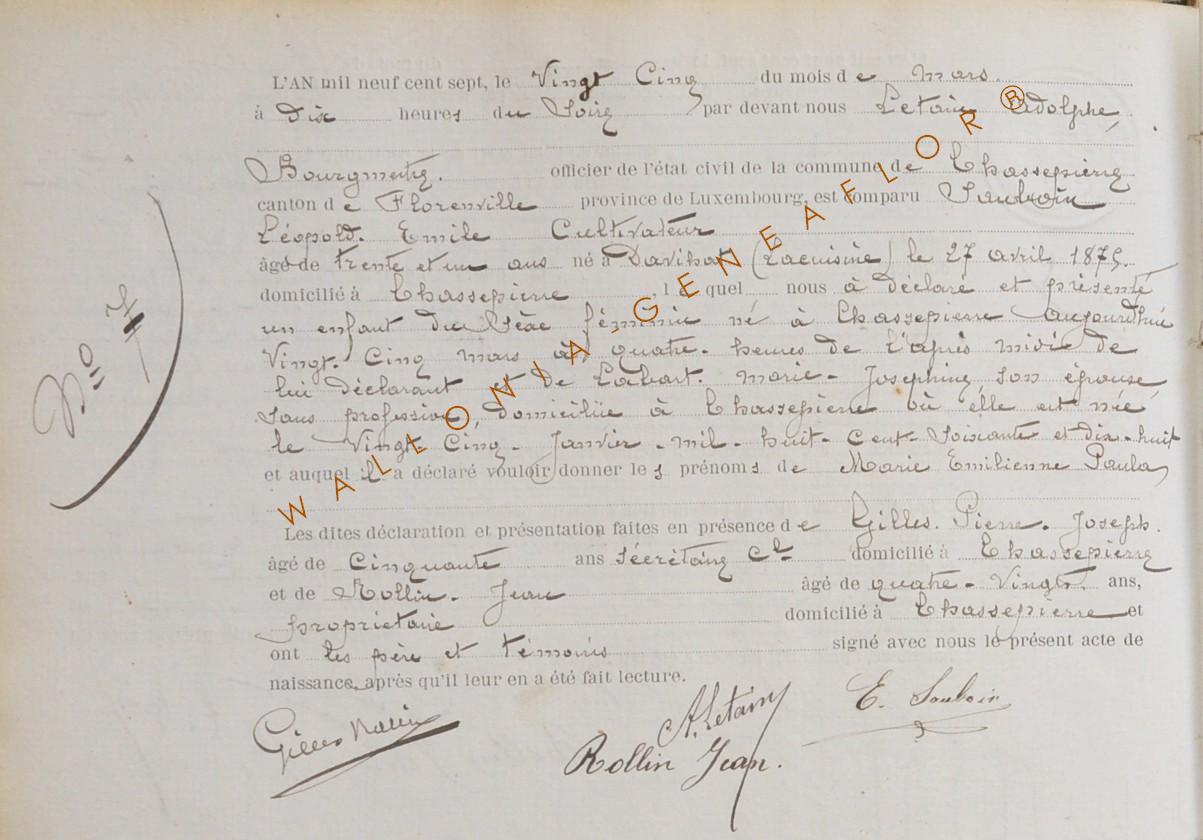 L'AN mil neuf cent sept, le Vingt Cinq du mois d e mars
à dix heures du Soir par devant nous Letain Adolphe,
Bourgmestre. officier de l'état civil de la commune de Chassepierre
canton d e Florenville province de Luxembourg, est comparu
Léopold. Emile Cultivateur
âgé de trente et un ans né à (Lacuisine) le 27 avril 1875.
domicilié à Chassepierre , l e quel nous à déclaré et présenté
un enfant du Sexe féminin né à Chassepierre Aujourd'hui
Vingt. Cinq mars à quatre. heures de l'après midi de
lui déclarant et de Labart. Marie - Josephine, Son épouse
Sans profession, domiciliée à Chassepierre où elle est née
le Vingt Cinq - Janvier - mil - huit - Cent - Soixante et dix - huit
et auquel il a déclaré vouloir donner le s prénoms de Marie Emilienne Paula,
Les dites déclaration et présentation faites en présence d e Gilles. Pierre. Joseph.
âgé de Cinquante ans Sécrétaire Cal domicilié à Chassepierre
et de Rollin. Jean âgé de quatre - Vingt ans,
propriétaire domicilié à Chassepierre et
ont les père et témoins signé avec nous le présent acte de
naissance, après qu'il leur en a été fait lecture.
N° 7
Gilles
A. Letain
E.
Rollin Jean.
WALLONIA GENEAFLOR ®